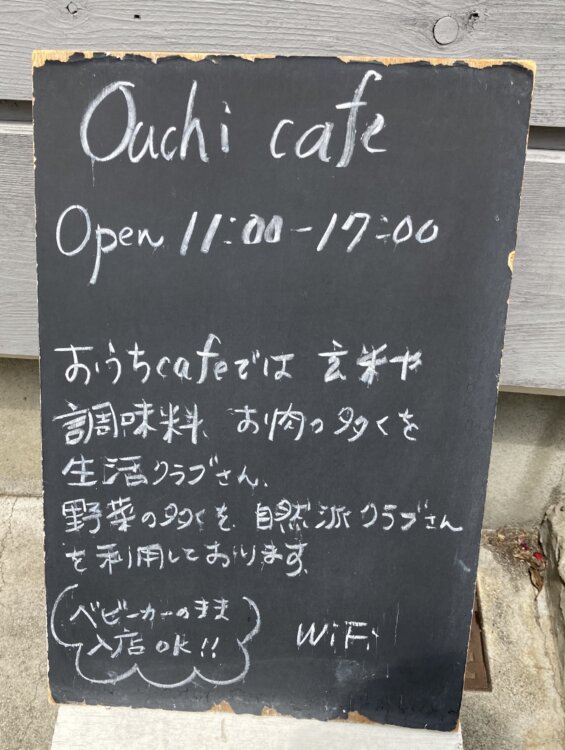 Ouchi cafe
Open 11:00-17:00
おうちcafeでは 玄米や
調味料、お肉の多くを
生活クラブさん、
野菜の多くを 自然派クラブさん
を利用しております。
ベビーカーのまま
入店OK!!
WiFi